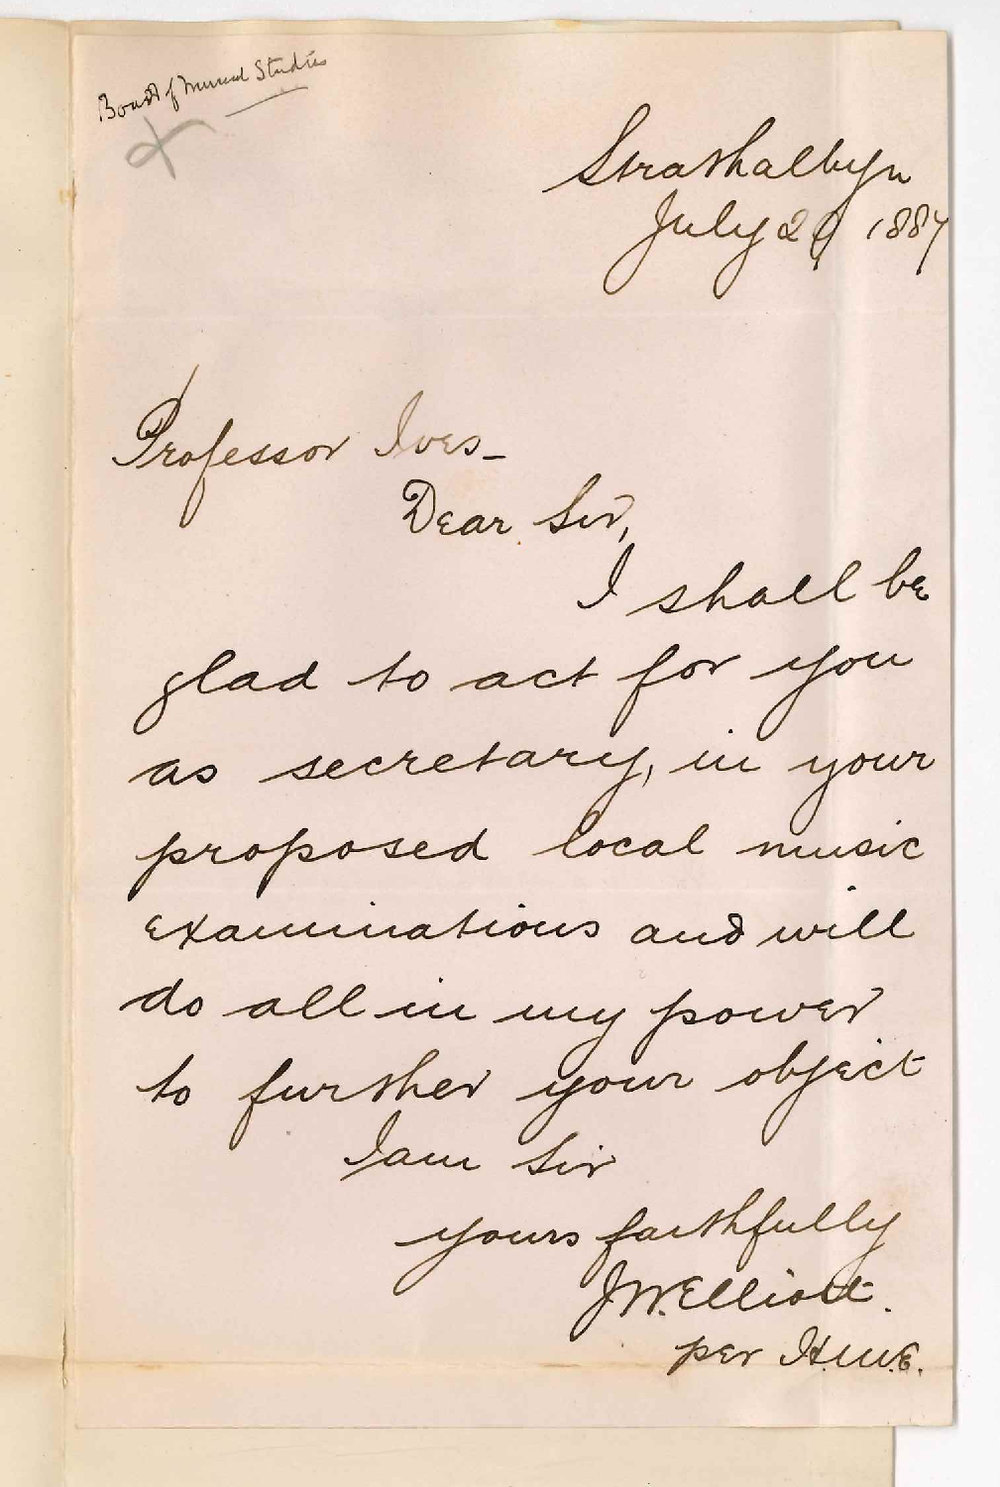 Board of Musical Studies
Strathalbyn
July 29 1887
Professor Ives_
Dear Sir,
I shall be
glad to act for you
as secretary, in your
proposed local music
examinations and will
do all in my power
to further your object
I am Sir
yours faithfully
J W. Elliott.
per H.W.E.